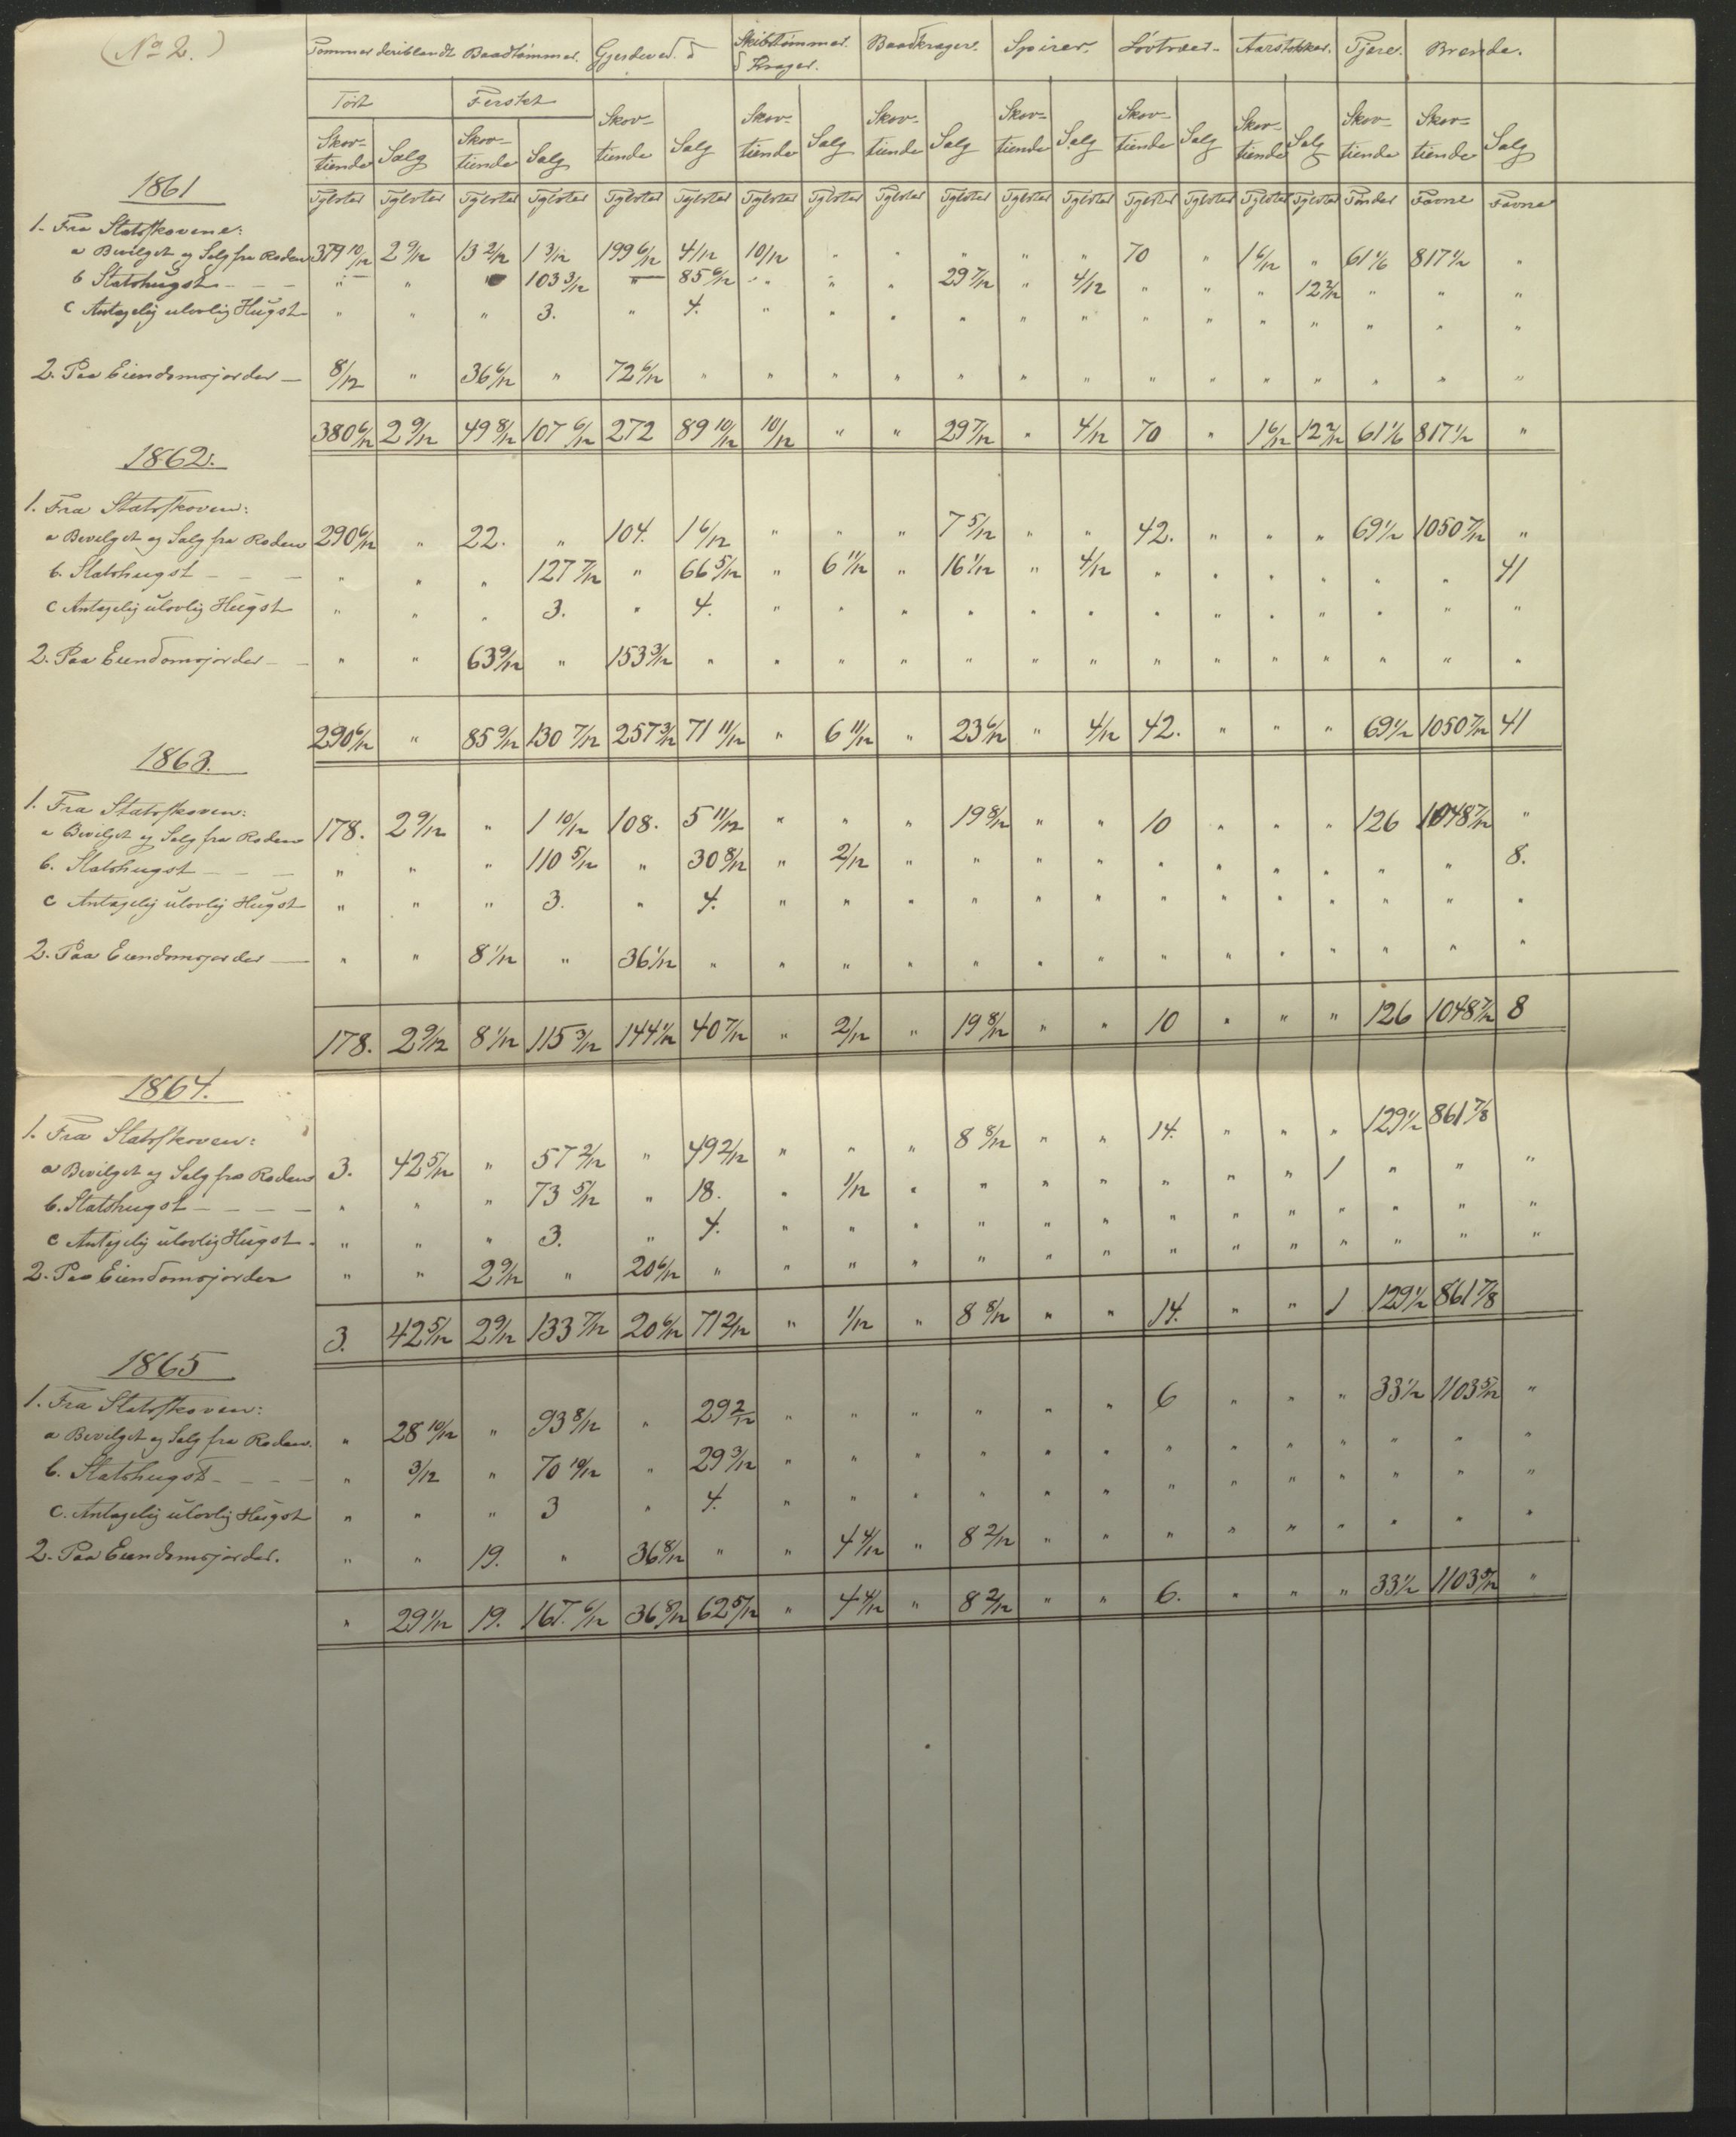 (No 2.)
Tømmer deriblandt Baadtømmer. Gjerdeved. Skibstømmer & Krager. Baadkrager. Spirer. Løvtræer. Aarstokker. Tjære. Brænde.
Tørt Ferskt
Skov-tiende Salg Skov-tiende Salg Skov-tiende Salg Skov-tiende Salg Skov-tiende Salg Skov-tiende Salg Skov-tiende Salg Skov-tiende Salg Skov-tiende Skov-tiende Salg
Tylvter Tylvter Tylvter Tylvter Tylvter Tylvter Tylvter Tylvter Tylvter Tylvter Tylvter Tylvter Tylvter Tylvter Tylvter Tylvter Tønder Favne Favne
1861
1. Fra Statsskovene:
a Bevilget og Salg fra Roden 379 10/12 2 9/12 13 2/12 1 3/12 199 6/12 4/12 10/12 " " " " " 70 " 1 6/12 " 61 1/6 817 1/2 "
b Statshugst - - - " " " 103 3/12 " 85 6/12 " " " 29 7/12 " 4/12 " " " 12 2/12 " " "
c Antagelig ulovlig Hugst " " " 3. " 4. " " " " " " " " " " " " "
2. Paa Eiendomsjorder - 8/12 " 36 6/12 " 72 6/12 " " " " " " " " " " " " " "
380 6/12 2 9/12 49 8/12 107 6/12 272 89 10/12 10/12 " " 29 7/12 " 4/12 70 " 1 6/12 12 2/12 61 1/6 817 1/2 "
1862.
1. Fra Statsskoven:
a Bevilget og Salg fra Roden 290 6/12 " 22. " 104. 1 6/12 " " " 7 5/12 " " 42. " " " 69 1/2 1050 7/12 "
b. Statshugst - - - " " " 127 7/12 " 66 5/12 " 6 11/12 " 16 1/12 " 4/12 " " " " " " 41
c Antagelig ulovlig Hugst " " " 3. " 4. " " " " " " " " " " " " "
2. Paa Eiendomsjorder - - " " 63 9/12 " 153 3/12 " " " " " " " " " " " " " "
290 6/12 " 85 9/12 130 7/12 257 3/12 71 11/12 " 6 11/12 " 23 6/12 " 4/12 42. " " " 69 1/2 1050 7/12 41
1863.
1. Fra Statsskoven:
a Bevilget og Salg fra Roden 178. 2 9/12 " 1 10/12 108. 5 11/12 " " " 19 8/12 " " 10 " " " 126 1048 7/12 "
b. Statshugst - - - " " " 110 5/12 " 30 8/12 " 2/12 " " " " " " " " " " 8.
c Antagelig ulovlig Hugst " " " 3. " 4. " " " " " " " " " " " " "
2. Paa Eiendomsjorder - " " 8 1/12 " 36 1/12 " " " " " " " " " " " " " "
178. 2 9/12 8 1/12 115 3/12 144 1/12 40 7/12 " 2/12 " 19 8/12 " " 10 " " " 126 1048 7/12 8
1864.
1. Fra Statsskoven:
a Bevilget og Salg fra Roden 3. 42 5/12 " 57 2/12 " 49 2/12 " " " 8 8/12 " " 14. " " " 129 1/2 861 7/8
b. Statshugst - - - - " " " 73 5/12 " 18. " 1/12 " " " " " " " 1 " " "
c Antagelig ulovlig Hugst - " " " 3. " 4. " " " " " " " " " " " " "
2. Paa Eiendomsjorder " " 2 9/12 " 20 6/12 " " " " " " " " " " " " " "
3. 42 5/12 2 9/12 133 7/12 20 6/12 71 2/12 " 1/12 " 8 8/12 " " 14. " " 1 129 1/2 861 7/8
1865
1. Fra Statsskoven:
a Bevilget og Salg fra Roden. " 28 10/12 " 93 8/12 " 29 2/12 " " " " " " 6 " " " 33 1/2 1103 5/12 "
b. Statshugst - - - - " 3/12 " 70 10/12 " 29 3/12 " " " " " " " " " " " " "
c. Antagelig ulovlig Hugst " " " 3 " 4. " " " " " " " " " " " " "
2. Paa Eiendomsjorder. " " 19. " 36 8/12 " " 4 4/12 " 8 2/12 " " " " " " " " "
" 29 1/12 19. 167. 6/12 36 8/12 62 5/12 " 4 4/12 " 8 2/12 " " 6. " " " 33 1/2 1103 5/12 "